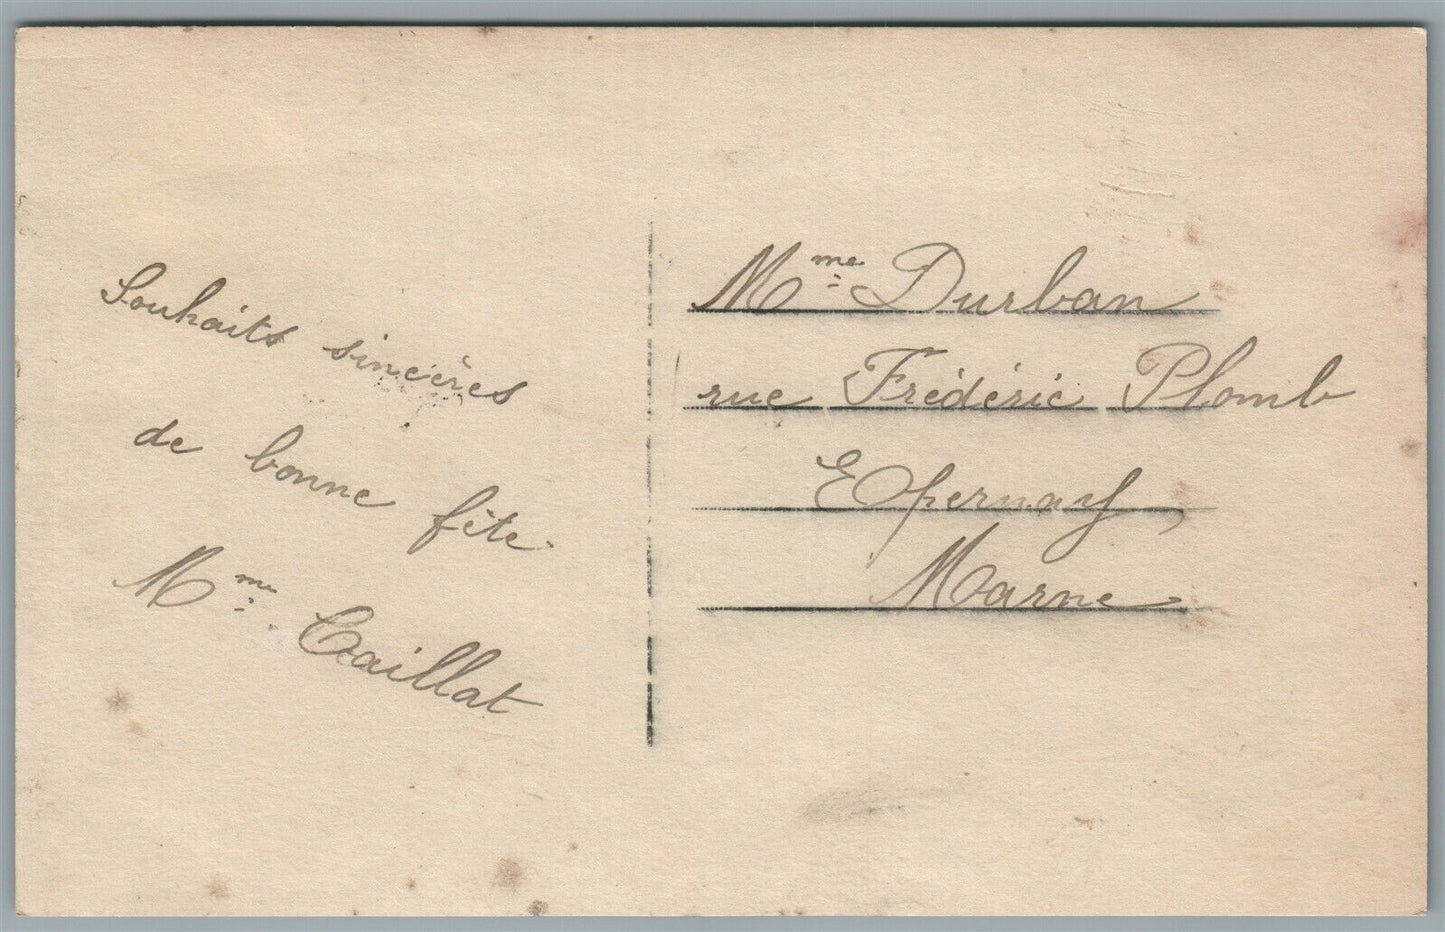 Souhaits sincères
de bonne fête
Mme Caillat
Mme Durban
rue Frédéric Plomb
Epernay,
Marne